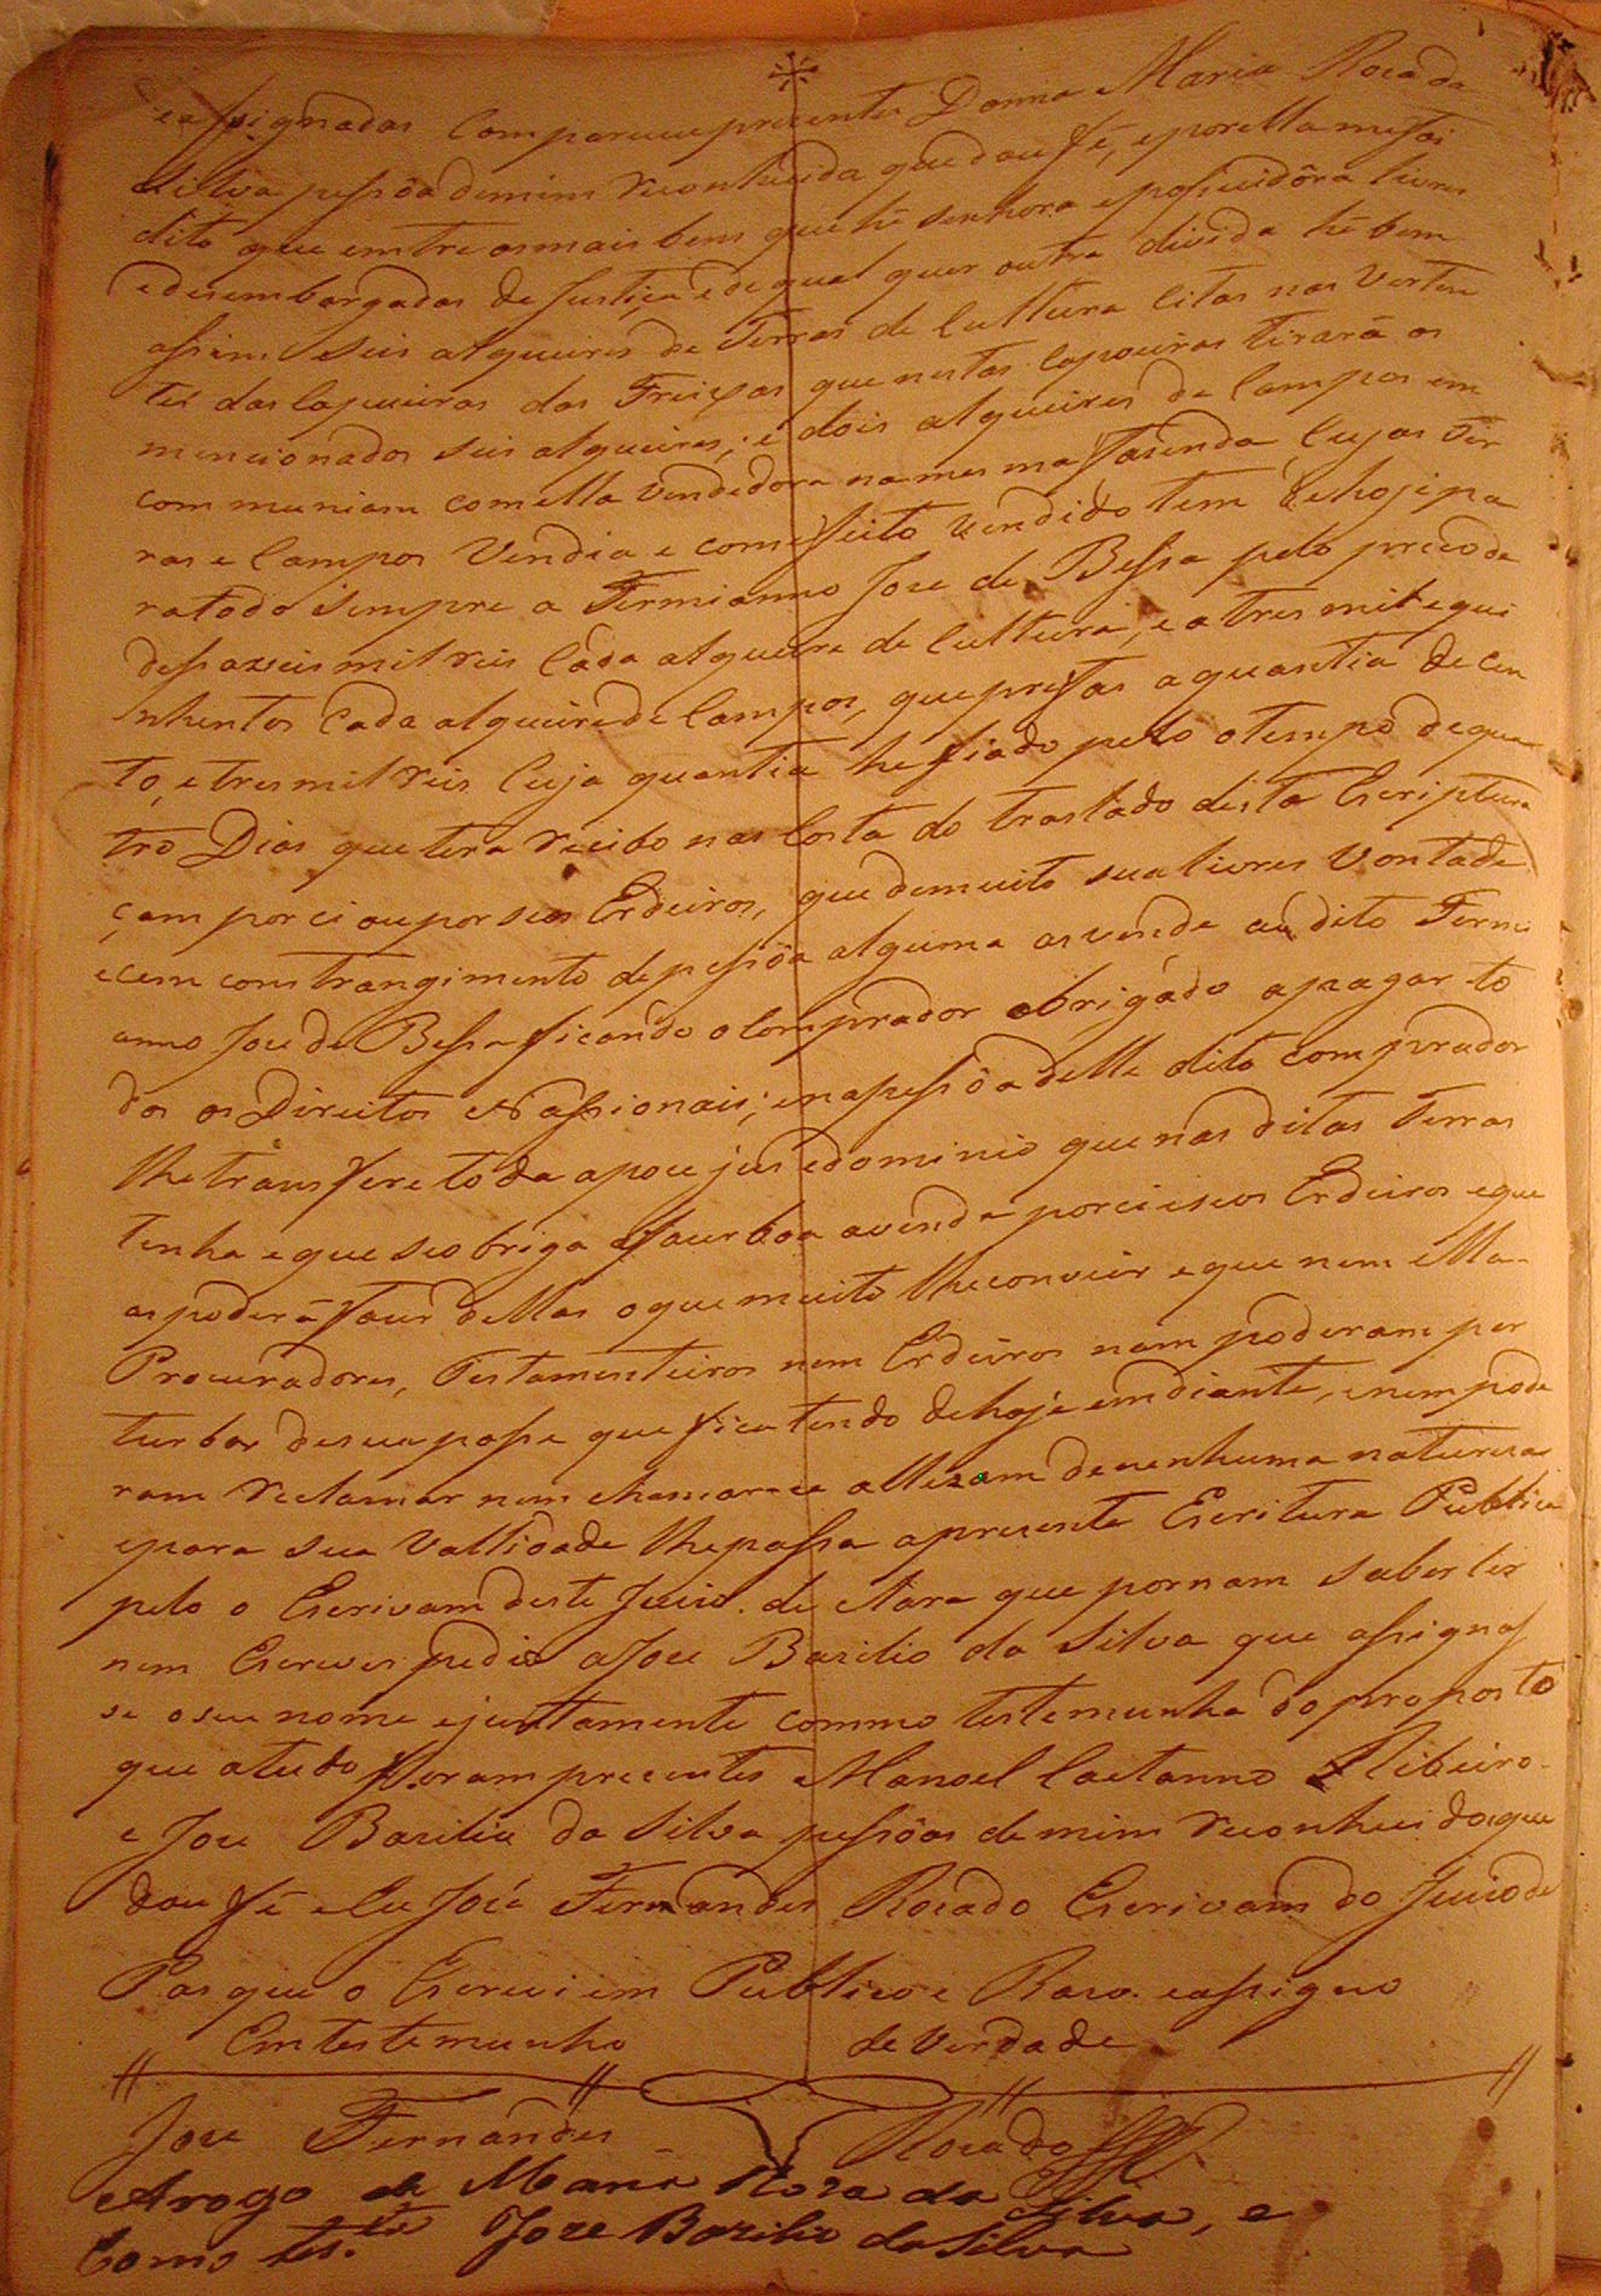 eassignadas Compareceu prezente Donna Maria Roza da
Silva pessôa demim reconhecida que dou fé, eporella mefoi
dito que emtre osmais bens que hé senhora epossuidôra livres
edesembargados de Justiça ede qual quer outra divida hé bem
assim seis alqueires de Terras de Cultura citas nas Verten
tes das Capueiras dos Freiças que nestas Capoeiras tirará os
mencionados seis alqueires; e dois alqueires de Campos em
communiam comella vendedora namesma fasenda Cujas Ter
ras e Campos Vendia e comefeito vendido tem dehoje pa
ratodo sempre a Firmianno Joze de Bessa pelo preco de
desasseis mil reis Cada alqueire de Cultura, e a tres mil equi
nhentos Cada alqueire de Campos, que prefas aquantia de cen
to, e tres mil reis Cuja quantia he fiado pelo otempo de qua
tro Dias que tera recibo nas Costa do traslado desta Escriptura
çam por ci ou por seos Erdeiros, que demuito sua livres Vontade
ecem constrangimento depessôa alguma as vende ao dito Firmi
anno Joze de Bessa ficando o Comprador obrigádo apagar to
dos os Direitos Nassionais; enapessôa delle dito comprador
lhe transfere toda apoce jus edominio que nas ditas Terras
tenha eque seobriga afazer boa avenda porcieseos Erdeiros eque
aspoderá fazer dellas oque muito lheconvier eque nem ella
Procuradores, Testamenteiros nem Erdeiros nam poderam per
turbar desua posse que fica tendo dehoje emdiante, enem pode
ram reclamar nem chamar-ce allezam denenhuma naturezas
epara sua Vallidade lhepassa aprezente Escritura Publica
pelo o Escrivam deste Juizo. de Nara que pornam saber ler
nem Escrever pedio aJoze Bazilio da Silva que assignas
se oseu nome ejuntamente commo testemunha do proposto
que atudo foram prezentes Manoel Caetanno Ribeiro
e Joze Bazilio da Silva pessôas demim reconhecidos que
dou fé eEu José Fernandes Rozado Escrivam do Juizo de
Pas que o Escrevi em Publico e Razo. eassigno
Em testemunho de Verdade
Joze Fernandes Rozado
Arogo de Maria Roza da Silva, e
Como tes.ta Joze Bazilio da Silva